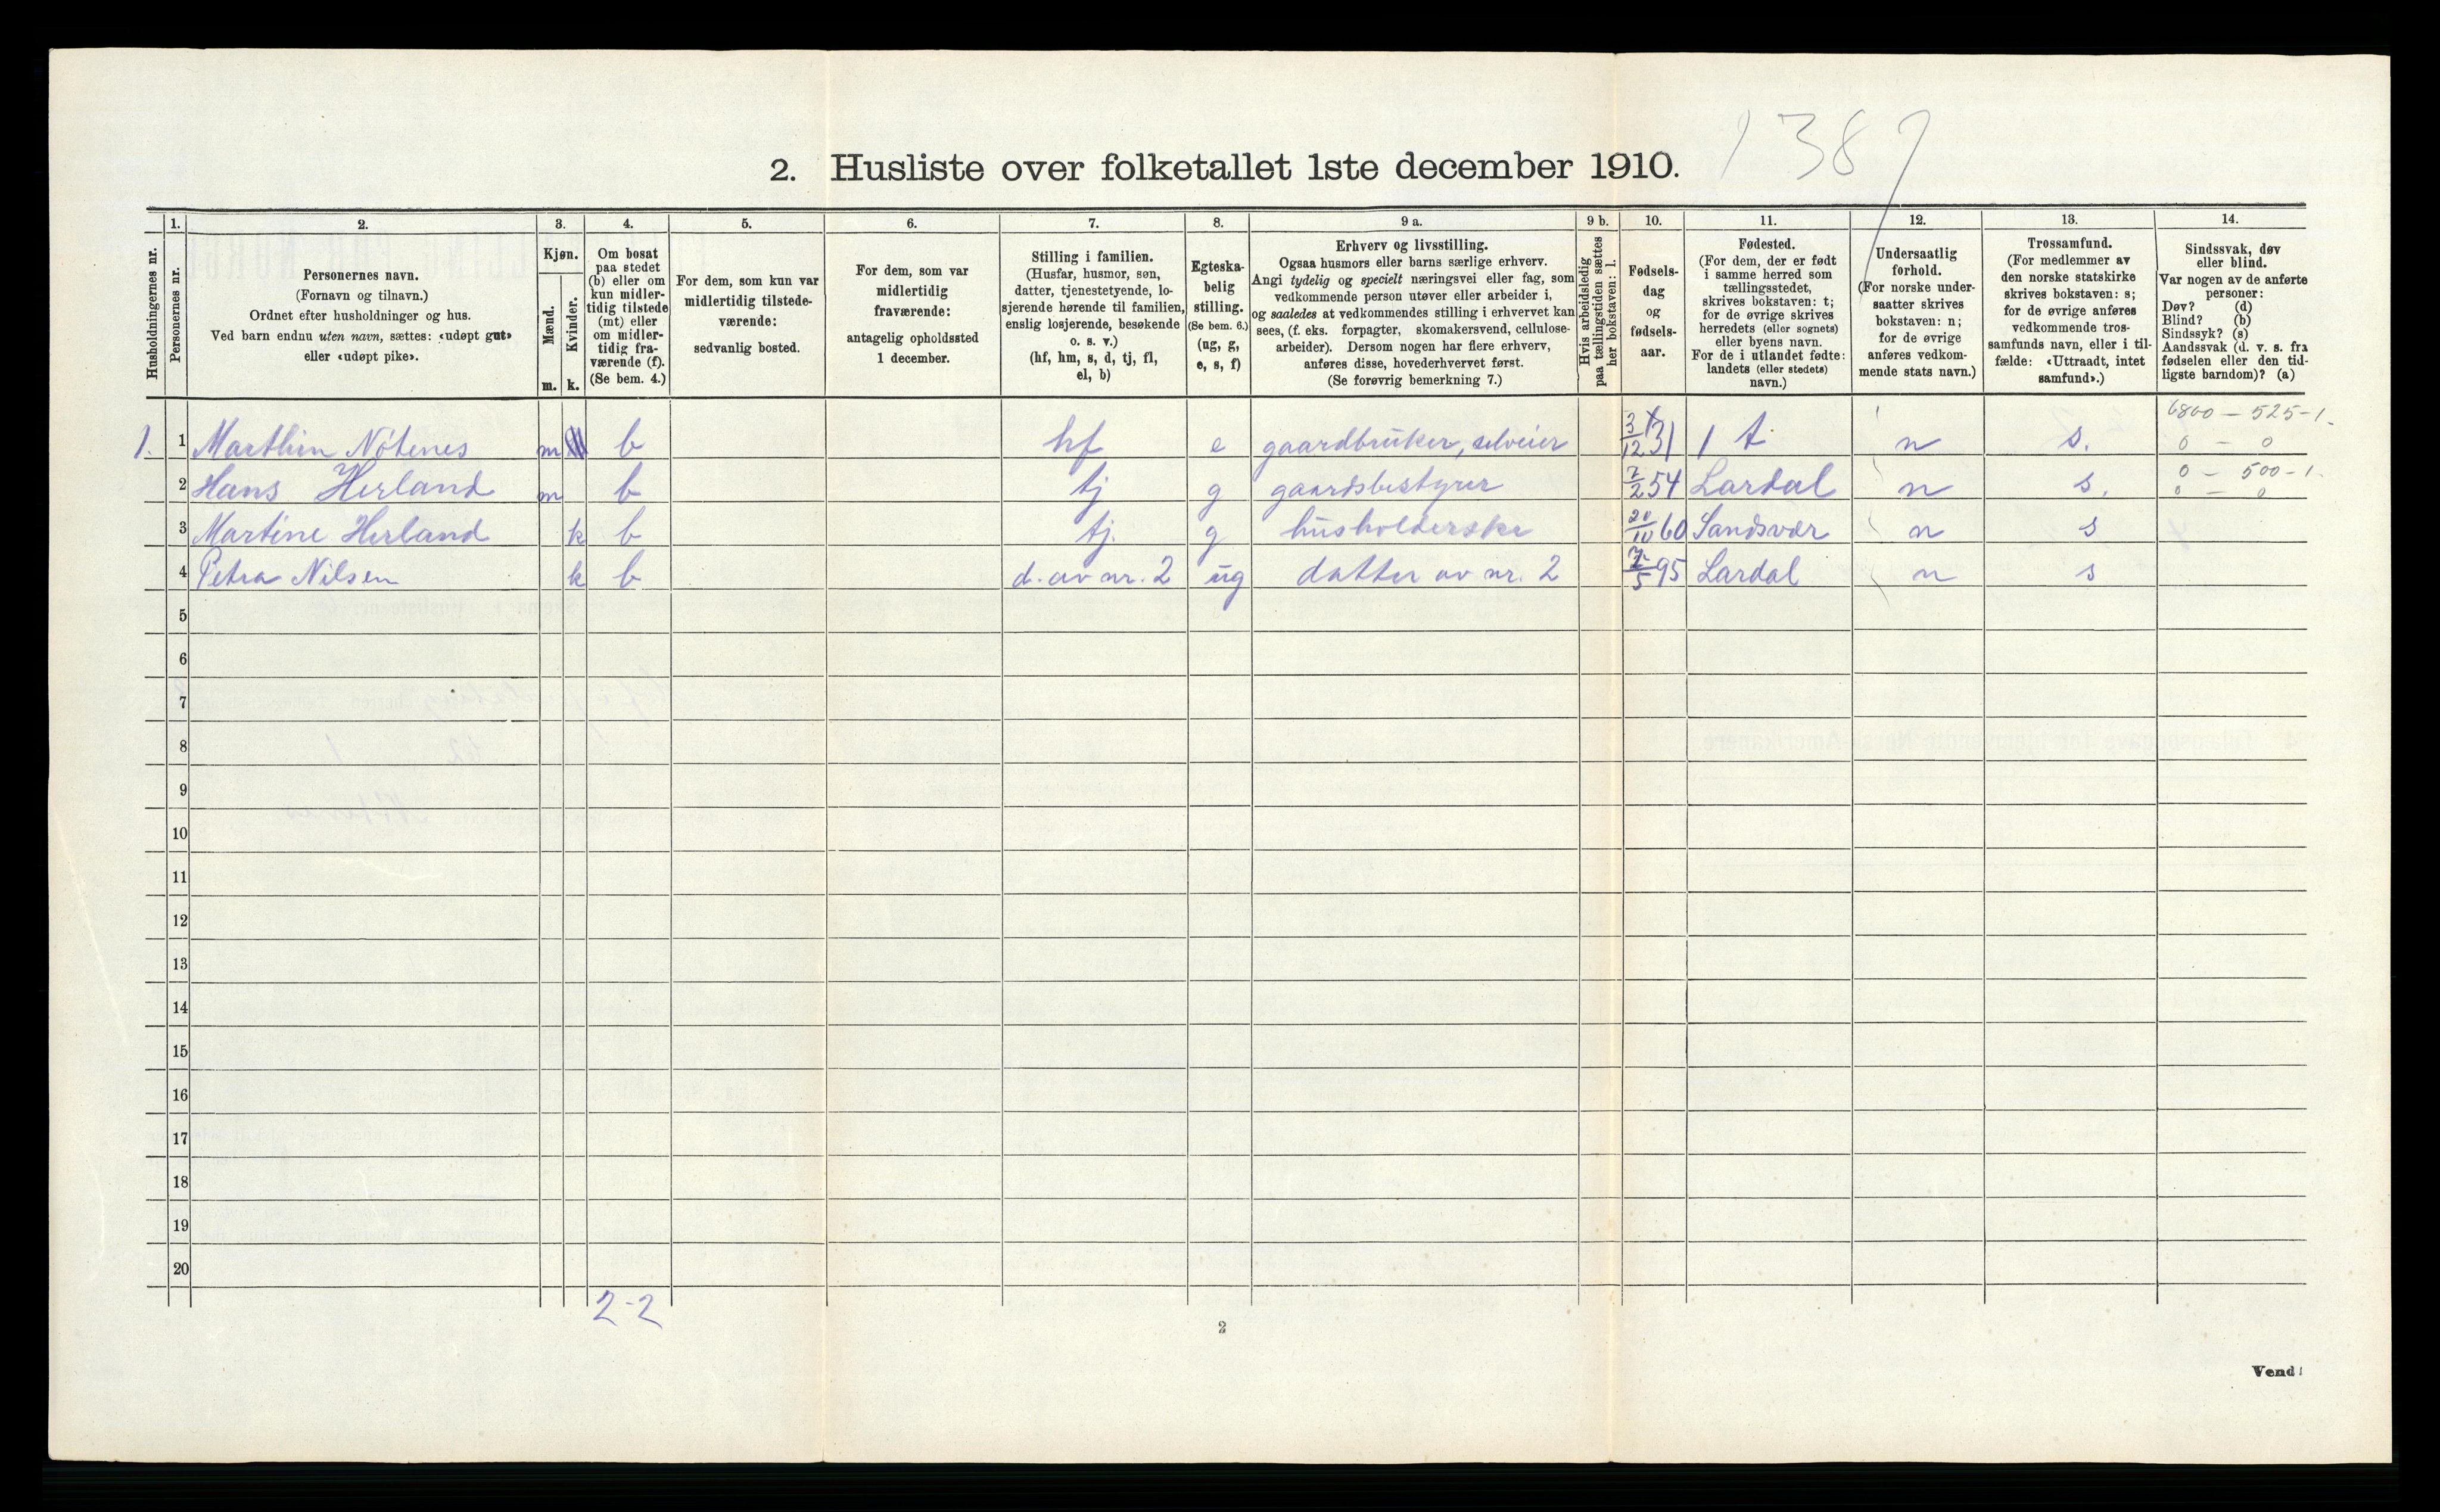 1387
2. Husliste over folketallet 1ste december 1910.
1. 2. 3. 4. 5. 6. 7. 8. 9 a. 9 b. 10. 11. 12. 13. 14.
Husholdningernes nr.
Personernes nr.
Personernes navn.
(Fornavn og tilnavn.)
Ordnet efter husholdninger og hus.
Ved barn endnu uten navn, sættes: «udøpt gut»
eller «udøpt pike».
Kjøn.
Mænd.
Kvinder.
m. k.
Om bosat
paa stedet
(b) eller om
kun midler-
tidig tilstede
(mt) eller
om midler-
tidig fra-
værende (f).
(Se bem. 4.)
For dem, som kun var
midlertidig tilstede-
værende:
sedvanlig bosted.
For dem, som var
midlertidig
fraværende:
antagelig opholdssted
1 december.
Stilling i familien.
(Husfar, husmor, søn,
datter, tjenestetyende, lo-
sjerende hørende til familien,
enslig losjerende, besøkende
o. s. v.)
(hf, hm, s, d, tj, fl,
el, b)
Egteska-
belig
stilling.
(Se bem. 6.)
(ug, g,
e, s, f)
Erhverv og livsstilling.
Ogsaa husmors eller barns særlige erhverv.
Angi tydelig og specielt næringsvei eller fag, som
vedkommende person utøver eller arbeider i,
og saaledes at vedkommendes stilling i erhvervet kan
sees, (f. eks. forpagter, skomakersvend, cellulose-
arbeider). Dersom nogen har flere erhverv,
anføres disse, hovederhvervet først.
(Se forøvrig bemerkning 7.)
Hvis arbeidsledig
paa tællingstiden sættes
her bokstaven: l.
Fødsels-
dag
og
fødsels-
aar.
Fødested.
(For dem, der er født
i samme herred som
tællingsstedet,
skrives bokstaven: t;
for de øvrige skrives
herredets (eller sognets)
eller byens navn.
For de i utlandet fødte:
landets (eller stedets)
navn.)
Undersaatlig
forhold.
(For norske under-
saatter skrives
bokstaven: n;
for de øvrige
anføres vedkom-
mende stats navn.)
Trossamfund.
(For medlemmer av
den norske statskirke
skrives bokstaven: s;
for de øvrige anføres
vedkommende tros-
samfunds navn, eller i til-
fælde: «Uttraadt, intet
samfund».)
Sindssvak, døv
eller blind.
Var nogen av de anførte
personer:
Døv? (d)
Blind? (b)
Sindssyk? (s)
Aandssvak (d. v. s. fra
fødselen eller den tid-
ligste barndom)? (a)
6800 - 525-1.
1. 1 Marthin Nötenes m b hf e gaardbruker, selveier 3/12 31 t n s. 0 - 0
0 - 500-1.
2 Hans Herland m b tj g gaardsbestyrer 7/2 54 Lardal n s. 0 - 0
3 Martine Herland k b tj. g husholderske 20/10 60 Sandsvær n s
4 Petra Nilsen k b d. av nr. 2 ug datter av nr. 2 7/5 95 Lardal n s
5
6
7
8
9
10
11
12
13
14
15
16
17
18
19
20
2-2
2
Vend!